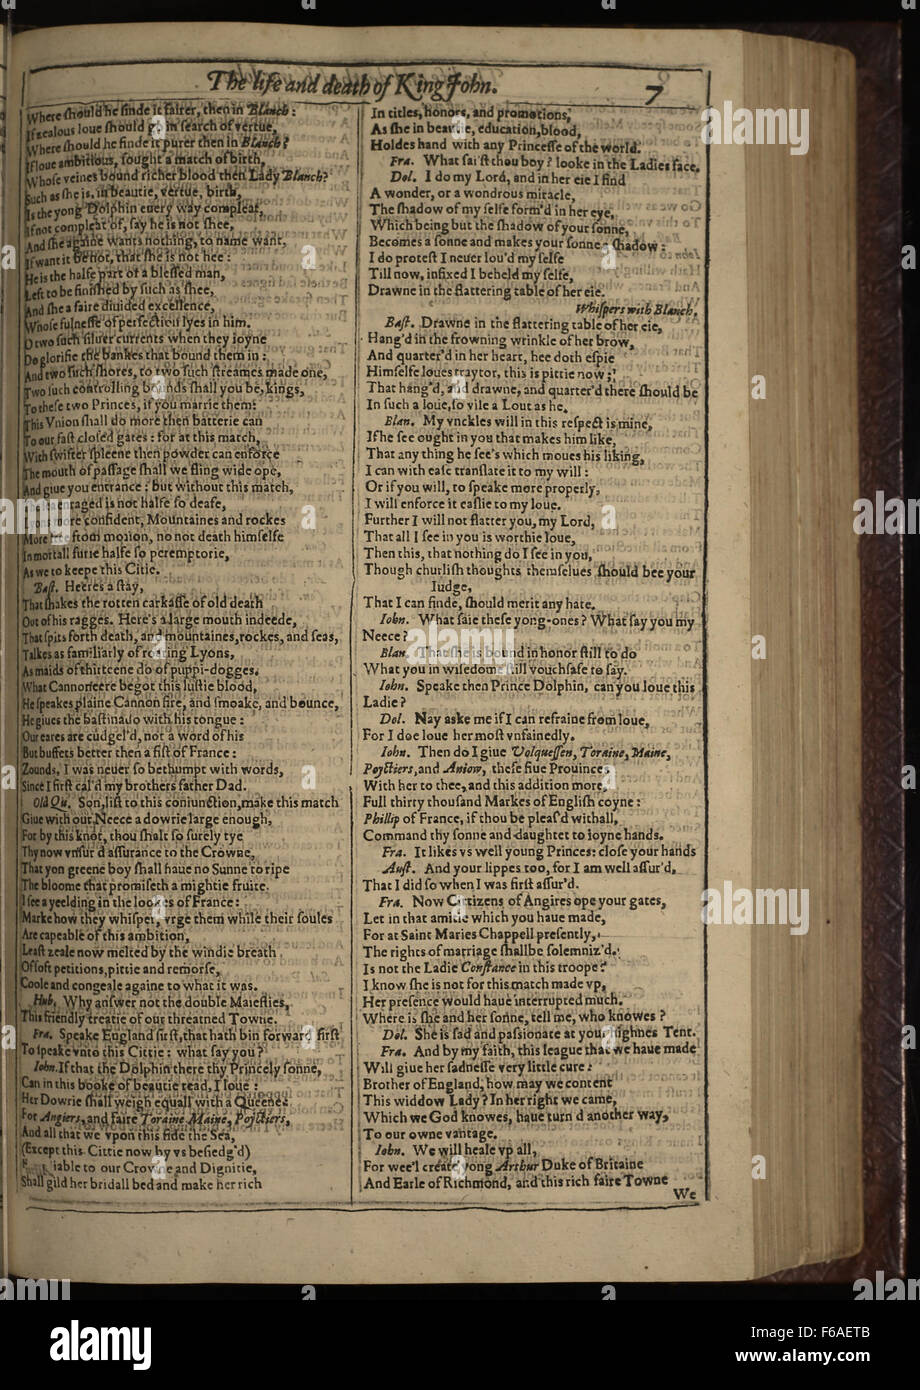 The life and death of King Iohn.
7
Where ſhould he finde it fairer, then in Blanch:
If zealous loue ſhould go in ſearch of vertue,
Where ſhould he finde it purer then in Blanch?
If loue ambitious, ſought a match of birth,
Whoſe veines bound richer blood then Lady Blanch?
Such as ſhe is, in beautie, vertue, birth,
Is the yong Dolphin euery way compleat,
If not compleat of, ſay he is not ſhee,
And ſhe againe wants nothing, to name want,
If want it be not, that ſhe is not hee:
He is the halfe part of a bleſſed man,
Left to be finiſhed by ſuch as ſhee,
And ſhe a faire diuided excellence,
Whoſe fulneſſe of perfection lyes in him.
O two ſuch ſiluer currents when they ioyne
Do glorifie the bankes that bound them in:
And two ſuch ſhores, to two ſuch ſtreames made one,
Two ſuch controlling bounds ſhall you be, kings,
To theſe two Princes, if you marrie them:
This Vnion ſhall do more then batterie can
To our faſt cloſed gates: for at this match,
With ſwifter ſpleene then powder can enforce
The mouth of paſſage ſhall we fling wide ope,
And giue you entrance: but without this match,
The ſea enraged is not halfe ſo deafe,
Lyons more confident, Mountaines and rockes
More free from motion, no not death himſelfe
In mortall furie halfe ſo peremptorie,
As we to keepe this Citie.
Baſt. Heeres a ſtay,
That ſhakes the rotten carkaſſe of old death
Out of his ragges. Here's a large mouth indeede,
That ſpits forth death, and mountaines, rockes, and ſeas,
Talkes as familiarly of roaring Lyons,
As maids of thirteene do of puppi-dogges.
What Cannoneere begot this luſtie blood,
He ſpeakes plaine Cannon fire, and ſmoake, and bounce,
He giues the baſtinado with his tongue:
Our eares are cudgel'd, not a word of his
But buffets better then a fiſt of France:
Zounds, I was neuer ſo bethumpt with words,
Since I firſt cal'd my brothers father Dad.
Old Qu. Son, liſt to this coniunction, make this match
Giue with our Neece a dowrie large enough,
For by this knot, thou ſhalt ſo ſurely tye
Thy now vnſur'd aſſurance to the Crowne,
That yon greene boy ſhall haue no Sunne to ripe
The bloome that promiſeth a mightie fruite.
I ſee a yeelding in the lookes of France:
Marke how they whiſper, vrge them while their ſoules
Are capeable of this ambition,
Leaſt zeale now melted by the windie breath
Of ſoft petitions, pittie and remorſe,
Coole and congeale againe to what it was.
Hub. Why anſwer not the double Maieſties,
This friendly treatie of our threatned Towne.
Fra. Speake England firſt, that hath bin forward firſt
To ſpeake vnto this Cittie: what ſay you?
Iohn. If that the Dolphin there thy Princely ſonne,
Can in this booke of beautie read, I loue:
Her Dowrie ſhall weigh equall with a Queene:
For Angiers, and faire Toraine Maine, Poyctiers,
And all that we vpon this ſide the Sea,
(Except this Cittie now by vs beſiedg'd)
Finde liable to our Crowne and Dignitie,
Shall gild her bridall bed and make her rich
In titles, honors, and promotions,
As ſhe in beautie, education, blood,
Holdes hand with any Princeſſe of the world.
Fra. What ſai'ſt thou boy? looke in the Ladies face.
Dol. I do my Lord, and in her eie I find
A wonder, or a wondrous miracle,
The ſhadow of my ſelfe form'd in her eye,
Which being but the ſhadow of your ſonne,
Becomes a ſonne and makes your ſonne a ſhadow:
I do proteſt I neuer lou'd my ſelfe
Till now, infixed I beheld my ſelfe,
Drawne in the flattering table of her eie.
Whiſpers with Blanch.
Baſt. Drawne in the flattering table of her eie,
Hang'd in the frowning wrinkle of her brow,
And quarter'd in her heart, hee doth eſpie
Himſelfe loues traytor, this is pittie now;
That hang'd, and drawne, and quarter'd there ſhould be
In ſuch a loue, ſo vile a Lout as he.
Blan. My vnckles will in this reſpect is mine,
If he ſee ought in you that makes him like,
That any thing he ſee's which moues his liking,
I can with eaſe tranſlate it to my will:
Or if you will, to ſpeake more properly,
I will enforce it eaſlie to my loue.
Further I will not flatter you, my Lord,
That all I ſee in you is worthie loue,
Then this, that nothing do I ſee in you,
Though churliſh thoughts themſelues ſhould bee your
Iudge,
That I can finde, ſhould merit any hate.
Iohn. What ſaie theſe yong-ones? What ſay you my
Neece?
Blan. That ſhe is bound in honor ſtill to do
What you in wiſedome ſtill vouchſafe to ſay.
Iohn. Speake then Prince Dolphin, can you loue this
Ladie?
Dol. Nay aske me if I can refraine from loue,
For I doe loue her moſt vnfainedly.
Iohn. Then do I giue Volqueſſen, Toraine, Maine,
Poyctiers, and Aniow, theſe fiue Prouinces
With her to thee, and this addition more,
Full thirty thouſand Markes of Engliſh coyne:
Phillip of France, if thou be pleaſ'd withall,
Command thy ſonne and daughter to ioyne hands.
Fra. It likes vs well young Princes: cloſe your hands
Auſt. And your lippes too, for I am well aſſur'd,
That I did ſo when I was firſt aſſur'd.
Fra. Now Cittizens of Angires ope your gates,
Let in that amitie which you haue made,
For at Saint Maries Chappell preſently,
The rights of marriage ſhallbe ſolemniz'd.
Is not the Ladie Conſtance in this troope?
I know ſhe is not for this match made vp,
Her preſence would haue interrupted much.
Where is ſhe and her ſonne, tell me, who knowes?
Dol. She is ſad and paſſionate at your highnes Tent.
Fra. And by my faith, this league that we haue made
Will giue her ſadneſſe very little cure:
Brother of England, how may we content
This widdow Lady? In her right we came,
Which we God knowes, haue turn'd another way,
To our owne vantage.
Iohn. We will heale vp all,
For wee'l create yong Arthur Duke of Britaine
And Earle of Richmond, and this rich faire Towne
We
alamy
Image ID: F6AETB
www.alamy.com